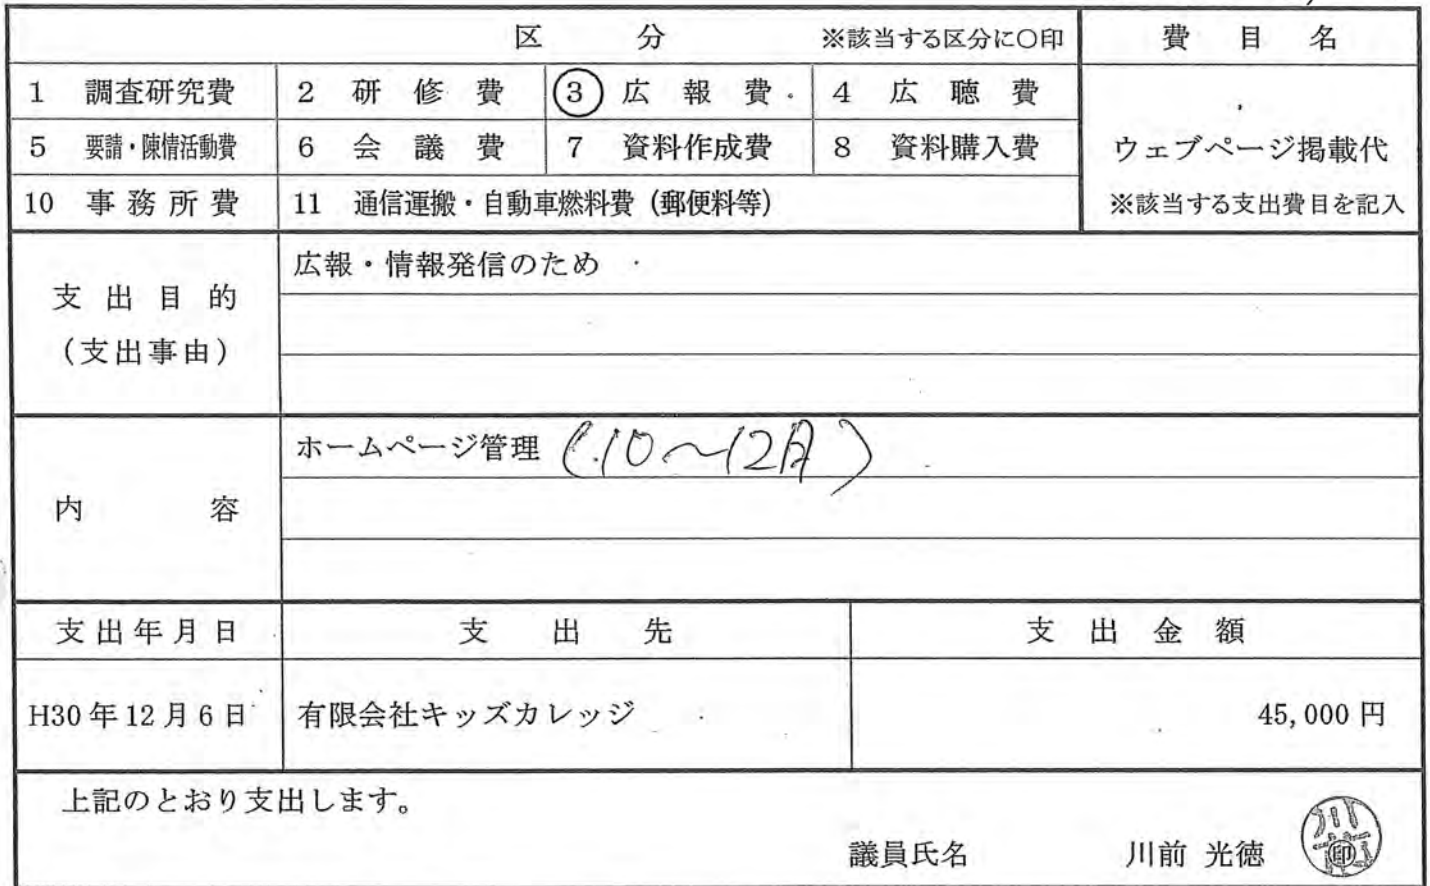 区 分 ※該当する区分に○印 費目名
1 調査研究費 2 研修費 ③ 広報費 4 広聴費
5 要請・陳情活動費 6 会議費 7 資料作成費 8 資料購入費 ウェブページ掲載代
10 事務所費 11 通信運搬・自動車燃料費（郵便料等） ※該当する支出費目を記入
支出目的
（支出事由）
広報・情報発信のため
内容
ホームページ管理 (10～12月)
支出年月日 支出先 支出金額
H30年12月6日 有限会社キッズカレッジ 45,000円
上記のとおり支出します。
議員氏名 川前 光徳 川前 印